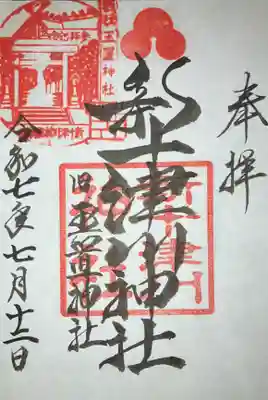 奉拝
新十津川神社
旧玉置神社
令和七年七月十二日
新十津川
玉置神社